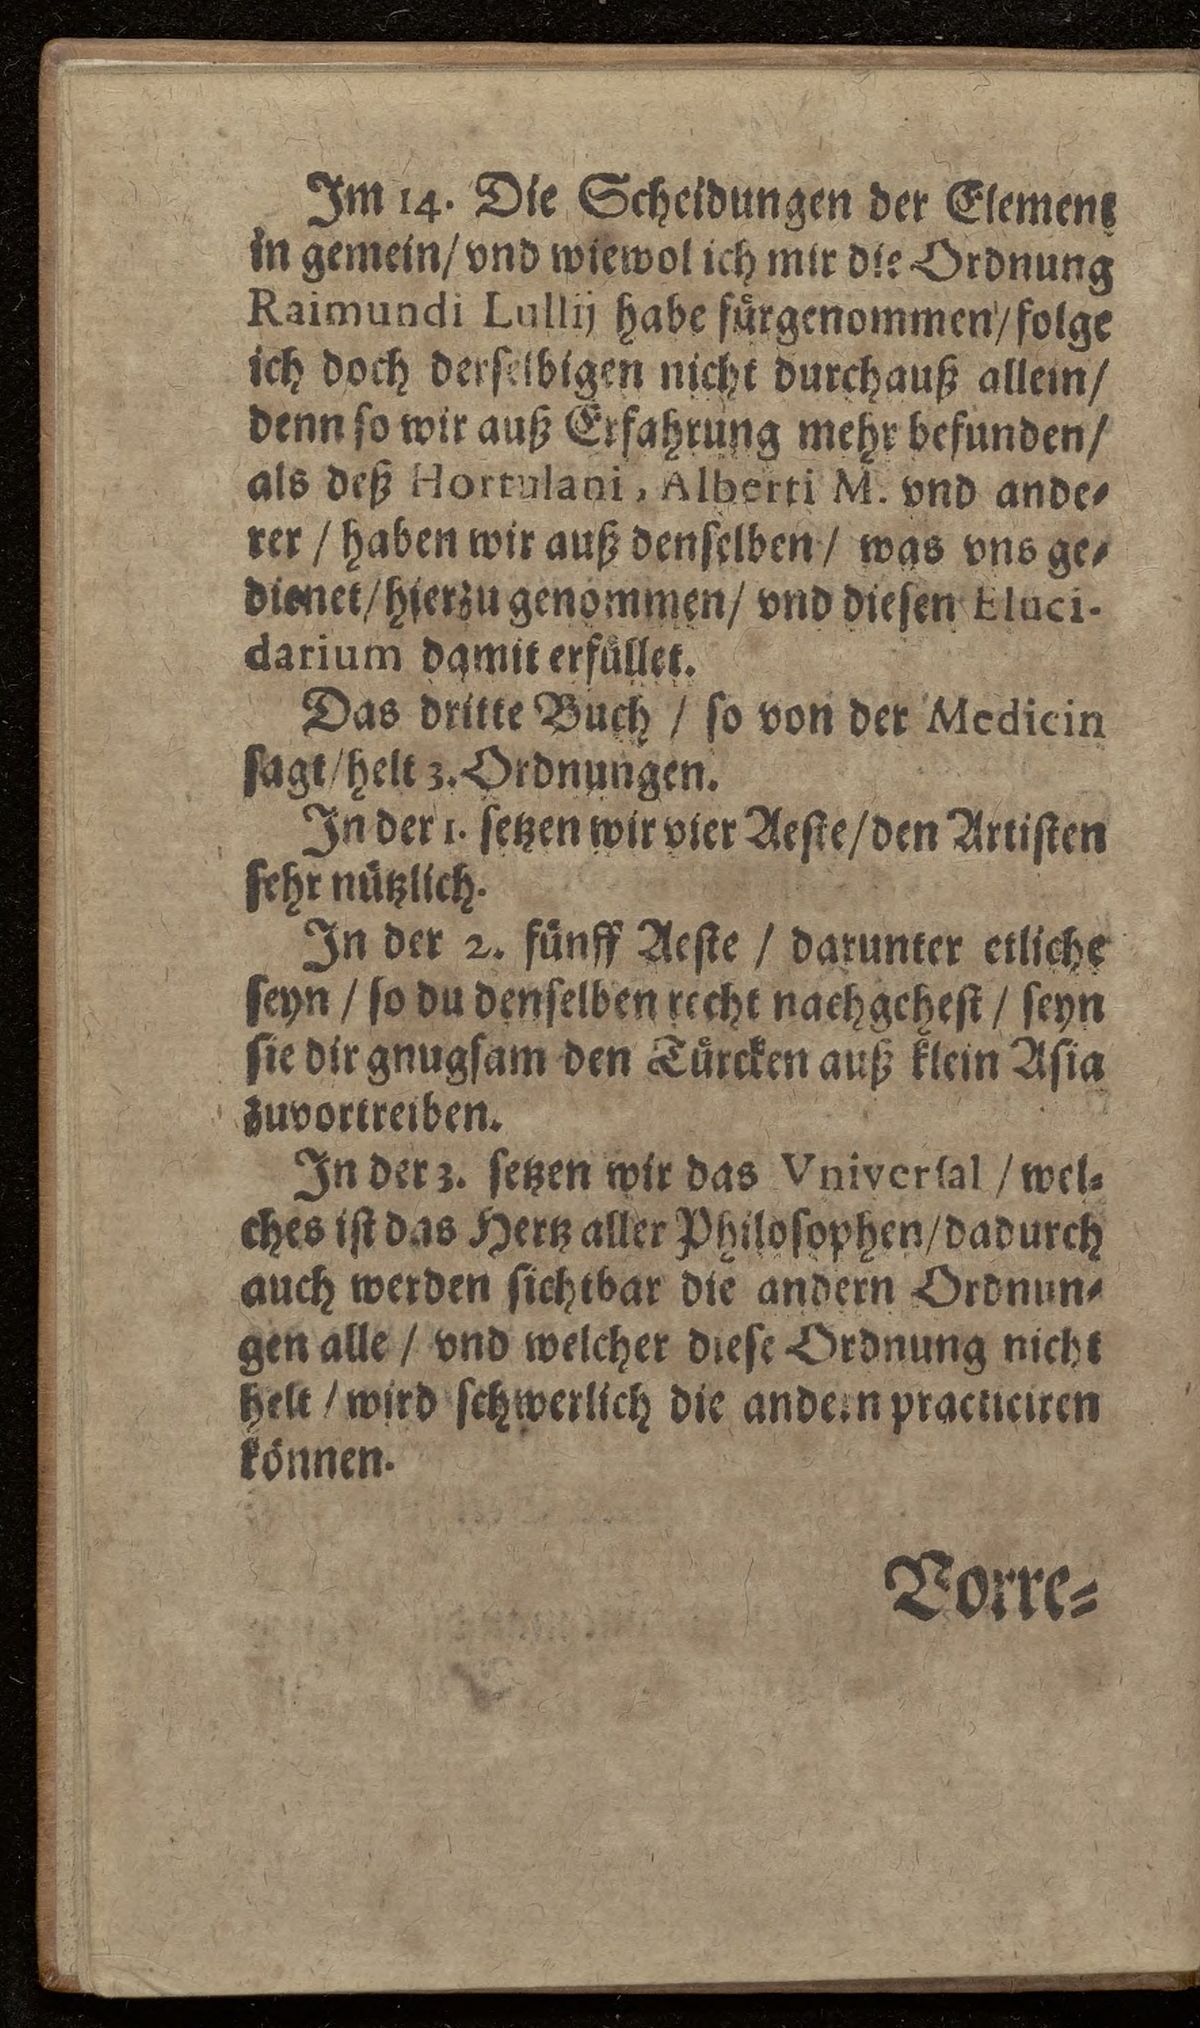 Im 14. Die Scheidungen der Element
in gemein/ vnd wiewol ich mir die Ordnung
Raimundi Lullij habe fürgenommen/ folge
ich doch derselbigen nicht durchauß allein/
denn so wir auß Erfahrung mehr befunden/
als deß Hortulani, Alberti M. vnd ande-
rer / haben wir auß denselben / was vns ge-
dienet/ hierzu genommen/ vnd diesen Eluci-
darium damit erfüllet.
Das dritte Buch / so von der Medicin
sagt/ helt 3. Ordnungen.
In der 1. setzen wir vier Aeste/ den Artisten
sehr nützlich.
In der 2. fünff Aeste / darunter etliche
seyn / so du denselben recht nachgehest / seyn
sie dir gnugsam den Türcken auß klein Asia
zuvortreiben.
In der 3. setzen wir das Vniversal / wel-
ches ist das Hertz aller Philosophen/ dadurch
auch werden sichtbar die andern Ordnun-
gen alle / vnd welcher diese Ordnung nicht
helt / wird schwerlich die andern practiciren
können.
Vorre-